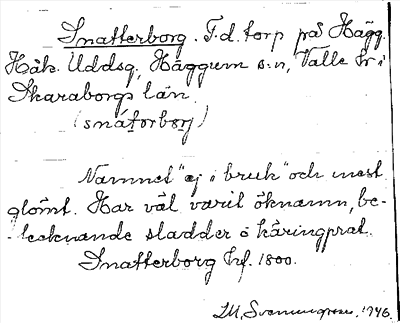 Snatterborg. F.d. torp på Hägg.
Håk. Uddsg, Häggum s:n, Valle hr i
Skaraborgs län.
(snátorborj)
Namnet "ej i bruk" och mest
glömt. Har väl varit öknamn, be-
tecknande sladder o käringprat.
Snatterborg hf. 1800.
1946.